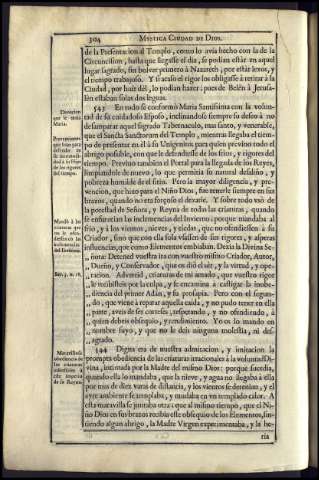 304
MYSTICA CIUDAD DE DIOS.
de la Presentacion al Templo, como lo avia hecho con la de la
Circuncision, hasta que llegasse el dia, se podian estàr en aquel
lugar sagrado, sin bolver primero à Nazareth, por estàr lexos, y
el tiempo trabajoso. Y si acaso el rigor los obligasse à retirar à la
Ciudad, por huir dèl, lo podian hazer; pues de Belèn à Jerusa-
lèn estaban solas dos leguas.
543 En todo se conformò Maria Santissima con la volun-
tad de su cuidadoso Esposo, inclinandose siempre su deseo à no
desamparar aquel sagrado Tabernaculo, mas santo, y venerable,
que el Sancta Sanctorum del Templo, mientras llegaba el tiem-
po de presentar en èl à su Unigenito, para quien previno todo el
abrigo possible, con que le defendiesse de los frios, y rigores del
tiempo. Previno tambien el Portal para la llegada de los Reyes,
limpiandole de nuevo, lo que permitia su natural desaliño, y
pobreza humilde del sitio. Pero la mayor diligencia, y pre-
vencion, que hizo para el Niño Dios, fue tenerle siempre en sus
brazos, quando no era forçoso el dexarle. Y sobre todo usò de
la potestad de Señora, y Reyna de todas las criaturas, quando
se enfurecian las inclemencias del Invierno: porque mandaba al
frio, y à los vientos, nieves, y eladas, que no ofendiessen à su
Criador, sino que con ella sola vsassen de sus rigores, y asperas
influencias, que como Elementos embiaban. Dezia la Divina Se-
ñora: Detened vuestra ira con vuestro mismo Criador, Autor,
Dueño, y Conservador, que os diò el sèr, y la virtud, y ope-
racion. Advertid, criaturas de mi amado, que vuestro rigor
le recibisteis por la culpa, y se encamina à castigar la inobe-
diencia del primer Adàn, y su prosapia. Pero con el segun-
do, que viene à reparar aquella caida, y no pudo tener en ella
parte, aveis de ser corteses, respetando, y no ofendiendo, à
quien debeis obsequio, y rendimiento. Yo os lo mando en
nombre suyo, y que no le deis ninguna molestia, ni des-
agrado.
544 Digna era de nuestra admiracion, y imitacion la
prompta obediencia de las criaturas irracionales à la voluntad Di-
vina, intimada por la Madre del mismo Dios: porque sucedia,
quando ella lo mandaba, que la nieve, y agua no llegaba à ello
por mas de diez varas de distancia, y los vientos se detenian, y el
ayre ambiente se templaba, y mudaba en vn templado calor. A
esta maravilla se juntaba otra: que al mismo tiempo, que el Ni-
ño Dios en sus brazos recibia este obsequio de los Elementos, sin-
tiendo algun abrigo, la Madre Virgen experimentaba, y la he-
ria